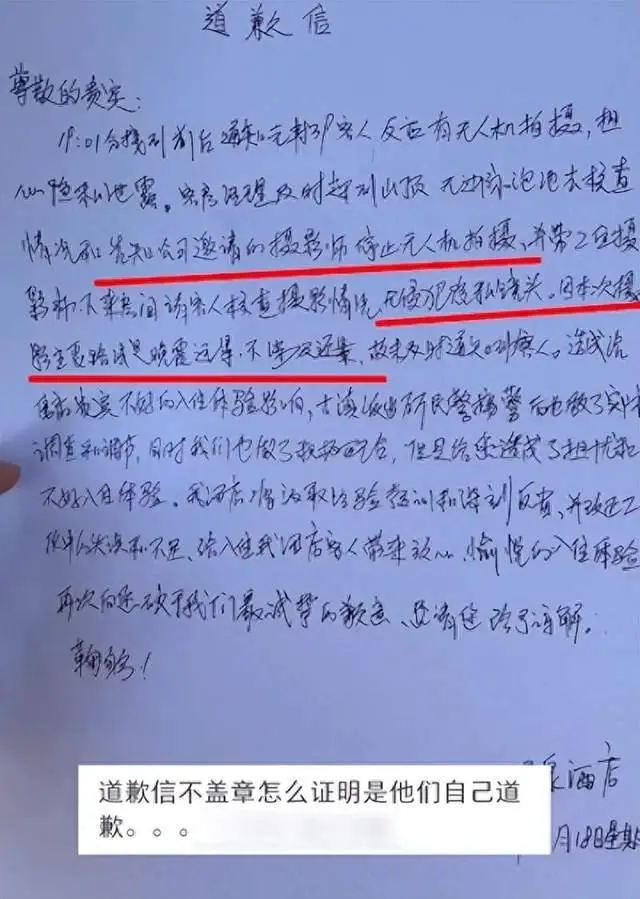 道歉信
尊敬的贵宾:
19:01分接到前台通知元利39客人反应有无人机拍摄,担
心隐私泄露。客房经理及时赶到山顶无边泳泡池去核查
情况和告知公司邀请的摄影师停止无人机拍摄、并带工作摄
影师 房间请客人核查摄影情况,无侵犯隐私镜头。因本次摄
影主要路线是晚霞远景,不涉及近景,故未及时通知到客人。造成给
贵宾不好的入住体验影响,古 派出所民警接警后也做了实地
调查和调节,同时我们也做了积极配合,但是给您造成了担忧和
不好入住体验。我酒店将汲取经验教训和深刻反省、并改进工
作中的失误和不足、给入住我酒店客人带来放心、愉悦的入住体验
再次向您致于我们最诚挚的歉意、还请您给予谅解。
鞠躬!
泉酒店
月18日星期
道歉信不盖章怎么证明是他们自己道
歉。。。